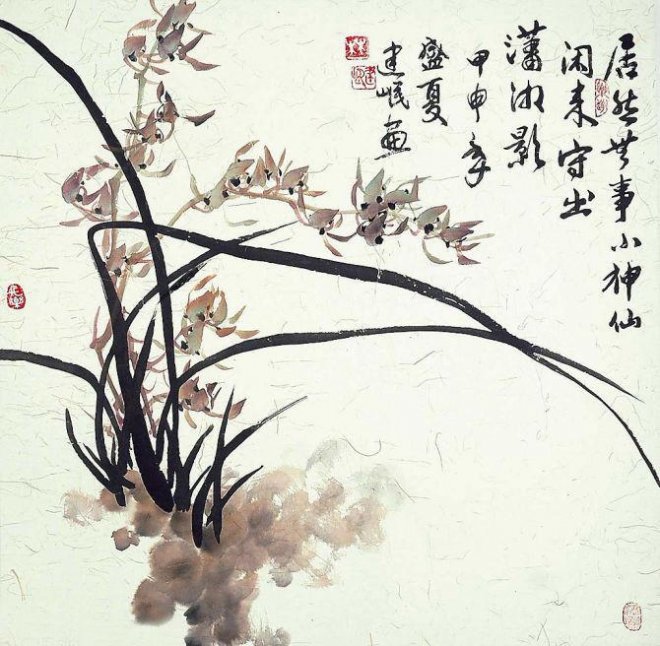 居然无事小神仙
闲来守出
潇湘影
甲申年
盛夏
建岷画